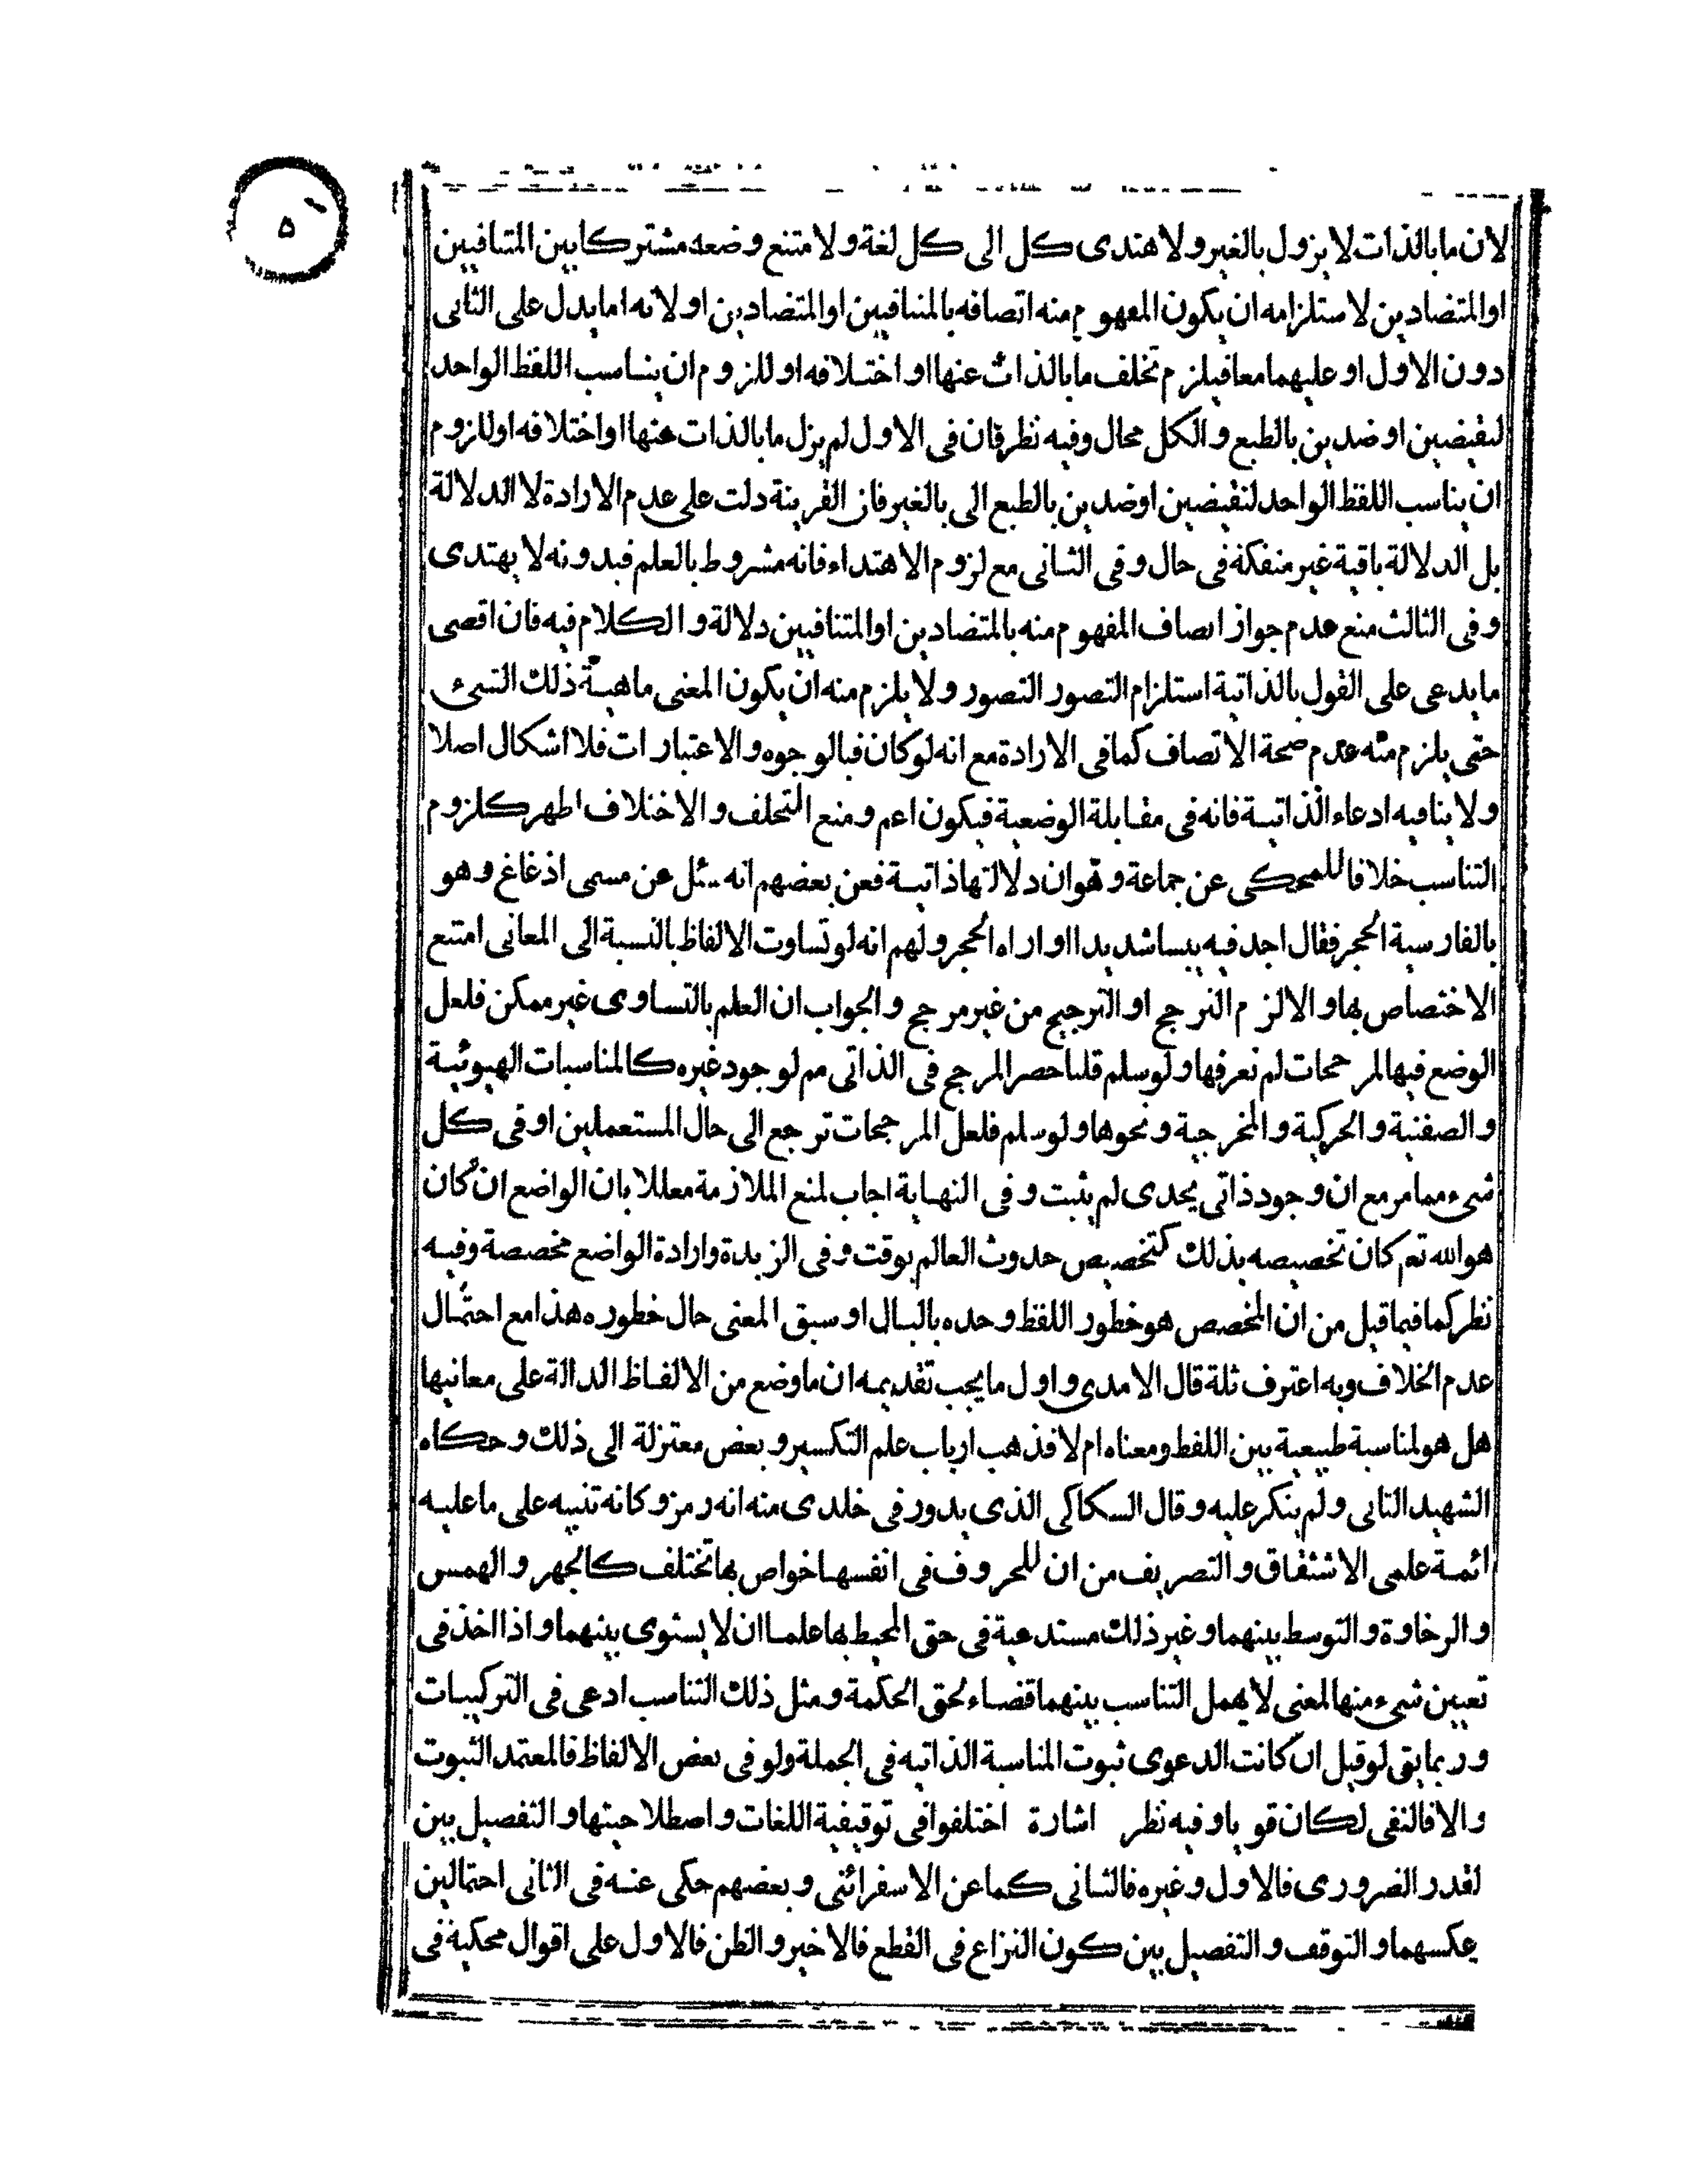 ۵
لان ما بالذات لا يزول بالغير ولاهتدى كل الى كل لغة ولامتنع وضعه مشتركا بين المتنافيين
او المتضادين لاستلزامه ان يكون المفهوم منه اتصافه بالمتنافيين او المتضادين اولانه اما يدل على الثانى
دون الاول او عليهما معا فيلزم تخلف ما بالذات عنها او اختلافه او للزوم ان يناسب اللفظ الواحد
لنقيضين او ضدين بالطبع والكل محال وفيه نظر فان فى الاول لم يزل ما بالذات عنها او اختلافه او للزوم
ان يناسب اللفظ الواحد لنقيضين او ضدين بالطبع الى بالغير فان القرينة دلت على عدم الارادة لا الدلالة
بل الدلالة باقية غير منفكة فى حال وفى الثانى مع لزوم الاهتداء فانه مشروط بالعلم فبدونه لا يهتدى
وفى الثالث منع عدم جواز اتصاف المفهوم منه بالمتضادين او المتنافيين دلالة والكلام فيه فان اقصى
ما يدعى على القول بالذاتية استلزام التصور التصور ولا يلزم منه ان يكون المعنى ماهية ذلك الشىء
حتى يلزم منه عدم صحة الاتصاف كما فى الارادة مع انه لو كان فبالوجوه والاعتبارات فلا اشكال اصلا
ولا ينافيه ادعاء الذاتية فانه فى مقابلة الوضعية فيكون اعم ومنع التخلف والاختلاف اظهر كلزوم
التناسب خلافا للمحكى عن جماعة وهو ان دلالتها ذاتية فعن بعضهم انه سئل عن مسمى اذغاغ وهو
بالفارسية الحجر فقال اجد فيه يبسا شديدا او اراه الحجر ولهم انه لو تساوت الالفاظ بالنسبة الى المعانى امتنع
الاختصاص بها والا لزم الترجح او الترجيح من غير مرجح والجواب ان العلم بالتساوى غير ممكن فلعل
الوضع فيها لمرجحات لم نعرفها ولو سلم قلنا حصر المرجح فى الذاتى مم لوجود غيره كالمناسبات الهيوئية
والصفتية والحركية والمخرجية ونحوها ولو سلم فلعل المرجحات ترجع الى حال المستعملين او فى كل
شىء مما مر مع ان وجود ذاتى يجدى لم يثبت وفى النهاية اجاب لمنع الملازمة معللا بان الواضع ان كان
هو الله تعم كان تخصيصه بذلك كتخصيص حدوث العالم بوقت وفى الزبدة وارادة الواضع مخصصة وفيه
نظر كما فيما قيل من ان المخصص هو خطور اللفظ وحده بالبال او سبق المعنى حال خطوره هذا مع احتمال
عدم الخلاف وبه اعترف ثلة قال الامدى واول ما يجب تقديمه ان ما وضع من الالفاظ الدالة على معانيها
هل هو لمناسبة طبيعية بين اللفظ ومعناه ام لا فذهب ارباب علم التكسير وبعض معتزلة الى ذلك وحكاه
الشهيد الثانى ولم ينكر عليه وقال السكاكى الذى يدور فى خلدى منه انه رمز وكانه تنبيه على ما عليه
ائمة علمى الاشتقاق والتصريف من ان للحروف فى انفسها خواص بها تختلف كالجهر والهمس
والرخاوة والتوسط بينهما وغير ذلك مستدعية فى حق المحيط بها علما ان لا يستوى بينهما واذا اخذ فى
تعيين شىء منها لمعنى لا يهمل التناسب بينهما قضاء لحق الحكمة ومثل ذلك التناسب ادعى فى التركيبات
وربما يقى لو قيل ان كانت الدعوى ثبوت المناسبة الذاتيه فى الجملة ولو فى بعض الالفاظ فالمعتمد الثبوت
والا فالنفى لكان قويا وفيه نظر اشارة اختلفوا فى توقيفية اللغات واصطلاحيتها والتفصيل بين
لقدر الضرورى فالاول وغيره فالثانى كما عن الاسفرائنى وبعضهم حكى عنه فى الثانى احتمالين
عكسهما والتوقف والتفصيل بين كون النزاع فى القطع فالاخير والظن فالاول على اقوال محكية فى